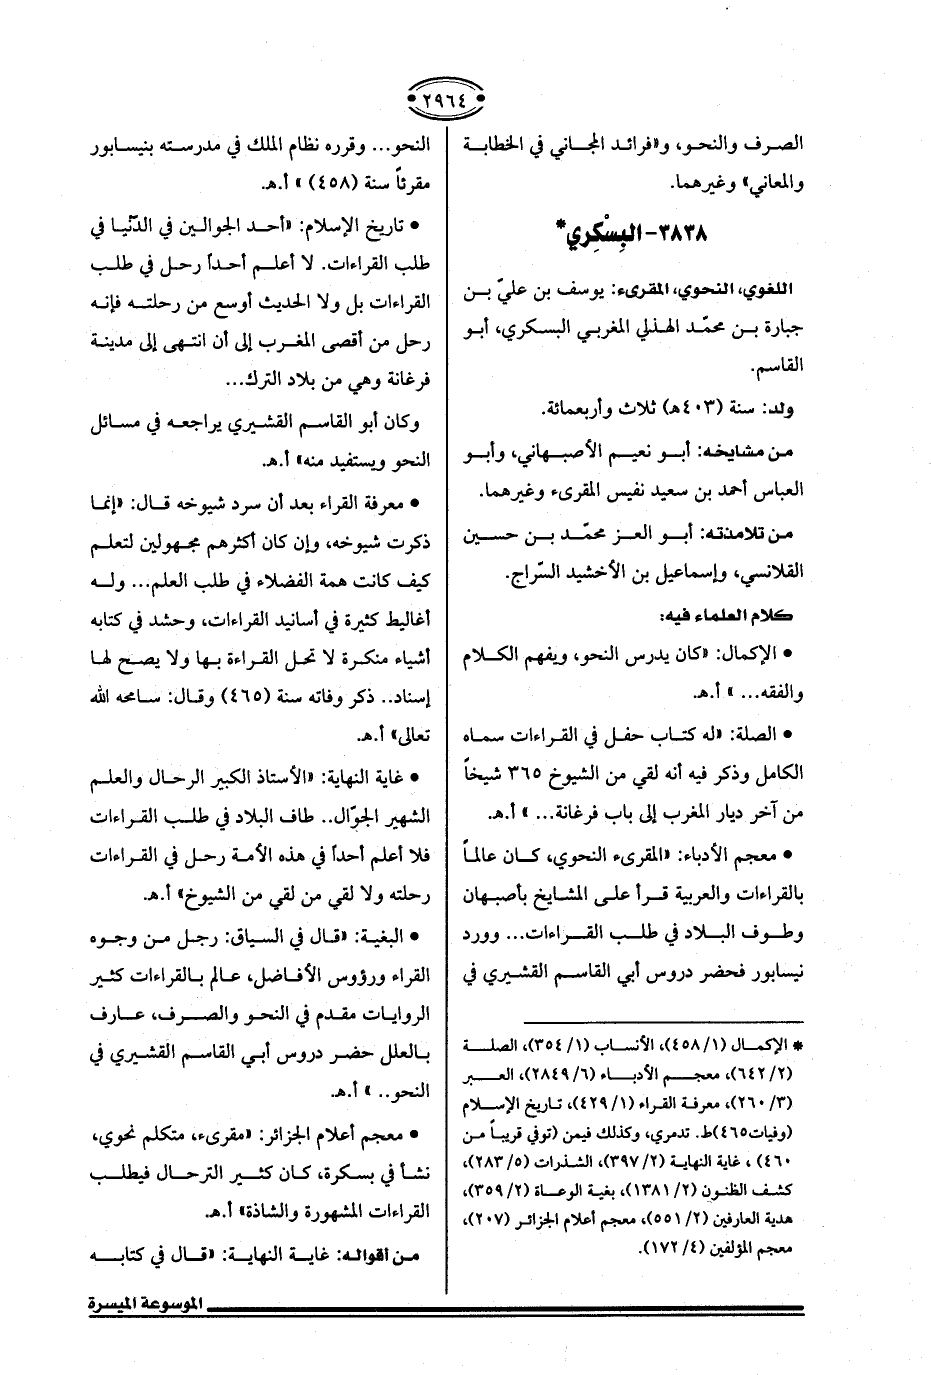 ٢٩٦٤
الصرف والنحو، و«فرائد المجاني في الخطابة
والمعاني» وغيرهما.
٣٨٣٨- البِسْكِري*
اللغوي، النحوي، المقرىء: يوسف بن عليّ بن
جبارة بن محمّد الهذلي المغربي البسكري، أبو
القاسم.
ولد: سنة (٤٠٣هـ) ثلاث وأربعمائة.
من مشايخه: أبو نعيم الأصبهاني، وأبو
العباس أحمد بن سعيد نفيس المقرىء وغيرهما.
من تلامذته: أبو العز محمّد بن حسين
القلانسي، وإسماعيل بن الأخشيد السّراج.
كلام العلماء فيه:
• الإكمال: «كان يدرس النحو، ويفهم الكلام
والفقه... » أ.هـ.
• الصلة: «له كتاب حفل في القراءات سماه
الكامل وذكر فيه أنه لقي من الشيوخ ٣٦٥ شيخاً
من آخر ديار المغرب إلى باب فرغانة... » أ.هـ.
• معجم الأدباء: «المقرىء النحوي، كان عالماً
بالقراءات والعربية قرأ على المشايخ بأصبهان
وطوف البلاد في طلب القراءات... وورد
نيسابور فحضر دروس أبي القاسم القشيري في
* الإكمال (١/ ٤٥٨)، الأنساب (١/ ٣٥٤)، الصلة
(٢/ ٦٤٢)، معجم الأدباء (٦/ ٢٨٤٩)، العبر
(٣/ ٢٦٠)، معرفة القراء (١/ ٤٢٩)، تاريخ الإسلام
(وفيات٤٦٥)ط. تدمري، وكذلك فيمن (توفي قريباً من
٤٦٠) ، غاية النهاية (٢/ ٣٩٧)، الشذرات (٥/ ٢٨٣)،
كشف الظنون (٢/ ١٣٨١)، بغية الوعاة (٢/ ٣٥٩)،
هدية العارفين (٢/ ٥٥١)، معجم أعلام الجزائر (٢٠٧)،
معجم المؤلفين (٤/ ١٧٢).
النحو... وقرره نظام الملك في مدرسته بنيسابور
مقرئاً سنة (٤٥٨) » أ.هـ.
• تاريخ الإسلام: «أحد الجوالين في الدّنيا في
طلب القراءات. لا أعلم أحداً رحل في طلب
القراءات بل ولا الحديث أوسع من رحلته فإنه
رحل من أقصى المغرب إلى أن انتهى إلى مدينة
فرغانة وهي من بلاد الترك...
وكان أبو القاسم القشيري يراجعه في مسائل
النحو ويستفيد منه» أ.هـ.
• معرفة القراء بعد أن سرد شيوخه قال: «إنما
ذكرت شيوخه، وإن كان أكثرهم مجهولين لتعلم
كيف كانت همة الفضلاء في طلب العلم... وله
أغاليط كثيرة في أسانيد القراءات، وحشد في كتابه
أشياء منكرة لا تحل القراءة بها ولا يصح لها
إسناد.. ذكر وفاته سنة (٤٦٥) وقال: سامحه الله
تعالى» أ.هـ.
• غاية النهاية: «الأستاذ الكبير الرحال والعلم
الشهير الجوّال.. طاف البلاد في طلب القراءات
فلا أعلم أحداً في هذه الأمة رحل في القراءات
رحلته ولا لقي من لقي من الشيوخ» أ.هـ.
• البغية: «قال في السياق: رجل من وجوه
القراء ورؤوس الأفاضل، عالم بالقراءات كثير
الروايات مقدم في النحو والصرف، عارف
بالعلل حضر دروس أبي القاسم القشيري في
النحو.. » أ.هـ.
• معجم أعلام الجزائر: «مقرىء، متكلم نحوي،
نشأ في بسكرة، كان كثير الترحال فيطلب
القراءات المشهورة والشاذة» أ.هـ.
من أقواله: غاية النهاية: «قال في كتابه
الموسوعة الميسرة